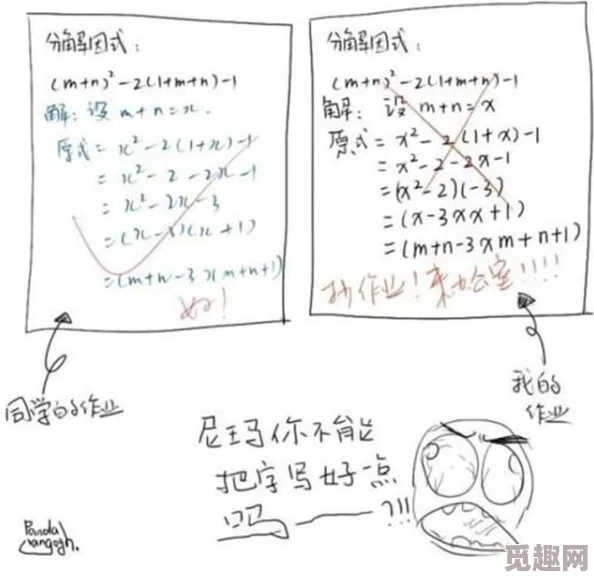 分解因式：
(m+n)²-2(1+m+n)-1
解：设 m+n=x.
原式=x²-2(1+x)-1
=x²-2-2x-1
=x²-2x-3
=(x-3)(x+1)
=(m+n-3)(m+n+1)
好！
同学的作业
分解因式：
(m+n)²-2(1+m+n)-1
解：设 m+n=x
原式=x²-2(1+x)-1
=x²-2-2x-1
=(x²-2)(-3)
=(x-3xx+1)
=(m+n-3xm+n+1)
抄作业！来办公室！！！！
我的
作业
尼玛你不能
把字写好一点
吗——?!!!
Panda
vangogh.
觅趣网